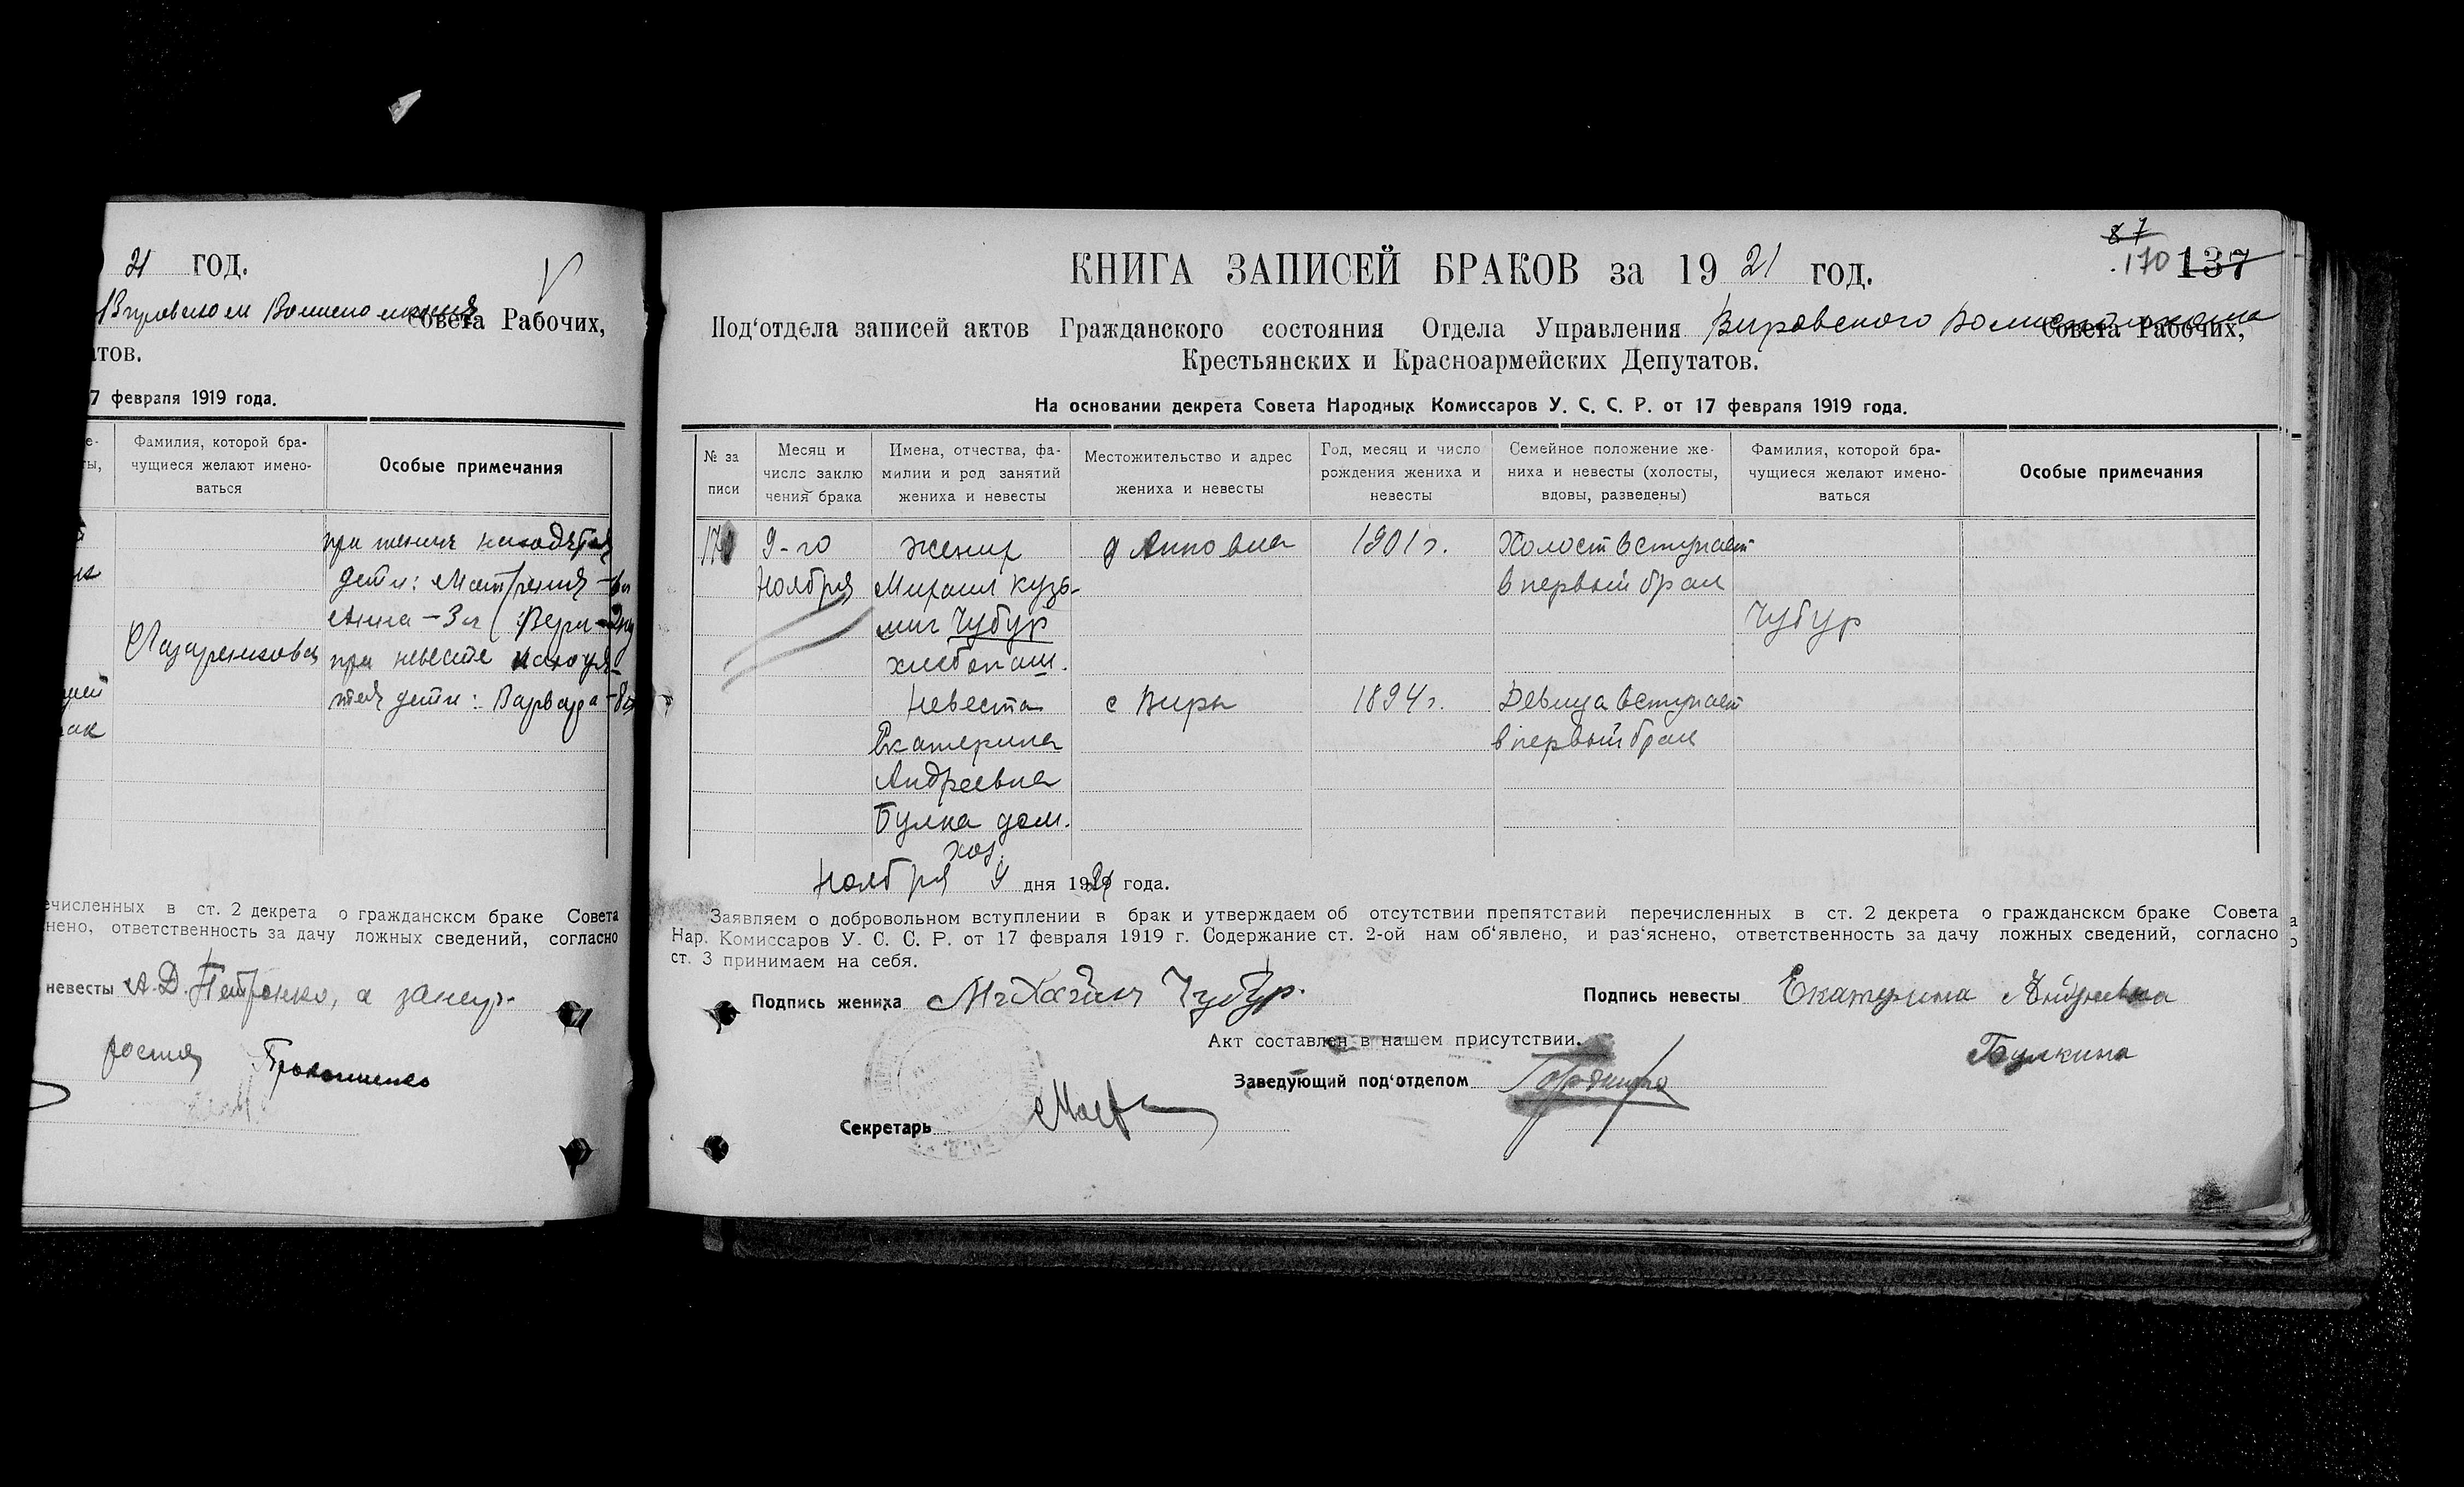 21 ГОД.
Совета Рабочих,
атов.
7 февраля 1919 года.
Фамилия, которой бра-
чущиеся желают имено-
ваться
Особые примечания
при женихе находятся
дети:
Анна - 3 л
Лазаренкова
при невесте находя-
тся дети: Варвара - 8 л
ак
ечисленных в ст. 2 декрета о гражданском браке Совета
нено, ответственность за дачу ложных сведений, согласно
невесты А. Д. Петренко, а за неу-
Прокопенко
87
170 137
КНИГА ЗАПИСЕЙ БРАКОВ за 1921 год.
Под'отдела записей актов Гражданского состояния Отдела Управления Вировского Волисполкома Совета Рабочих,
Крестьянских и Красноармейских Депутатов.
На основании декрета Совета Народных Комиссаров У. С. С. Р. от 17 февраля 1919 года.
№ за
писи
Месяц и
число заклю
чения брака
Имена, отчества, фа-
милии и род занятий
жениха и невесты
Местожительство и адрес
жениха и невесты
Год, месяц и число
рождения жениха и
невесты
Семейное положение же-
ниха и невесты (холосты,
вдовы, разведены)
Фамилия, которой бра-
чущиеся желают имено-
ваться
Особые примечания
9-го
Ноября
Жених
Михаил Кузь-
мич Чубур
хлебопаш.
д Анновка
1901 г.
Холост вступает
в первый брак
Чубур
Невеста
Екатерина
Андреевна
Булка дом.
хоз.
с Виры
1894 г.
Девица вступает
в первый брак
Ноября 9 дня 1921 года.
Заявляем о добровольном вступлении в брак и утверждаем об отсутствии препятствий перечисленных в ст. 2 декрета о гражданском браке Совета
Нар. Комиссаров У. С. С. Р. от 17 февраля 1919 г. Содержание ст. 2-ой нам об'явлено, и раз'яснено, ответственность за дачу ложных сведений, согласно
ст. 3 принимаем на себя.
Подпись жениха Михаил Чубур.
Подпись невесты Екатерина Андреевна
Булкина
Акт составлен в нашем присутствии.
Заведующий под'отделом
Секретарь